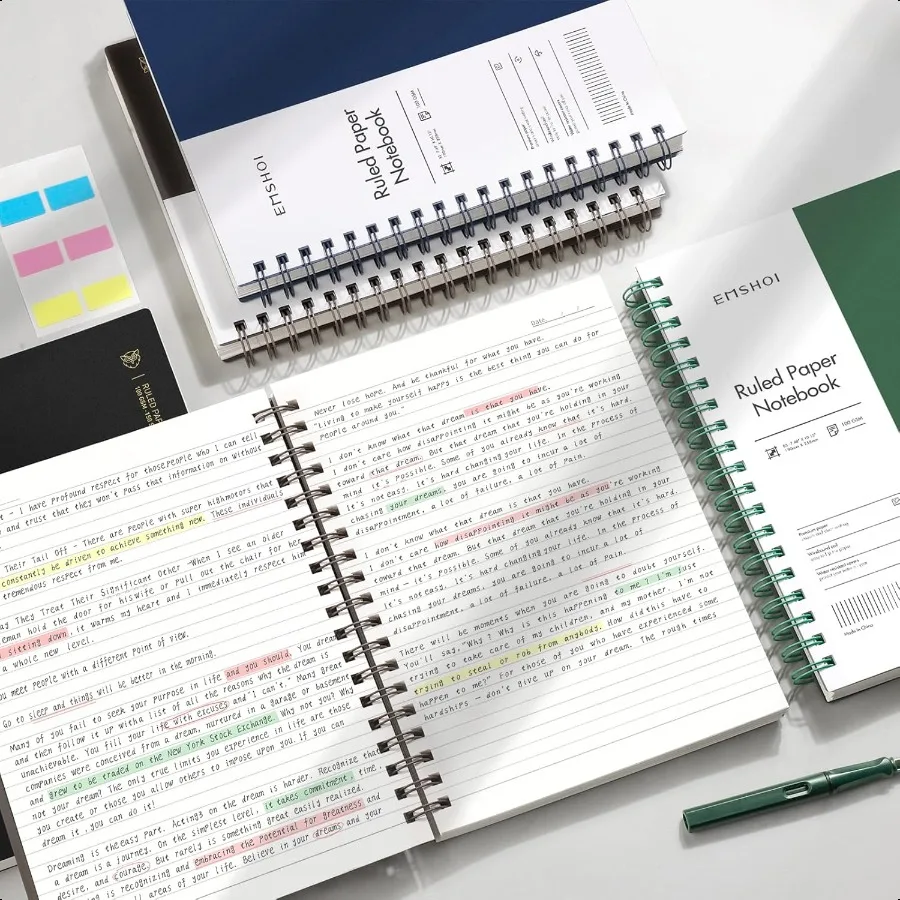 EMSHOI
Ruled Paper
Notebook
100 GSM
Made in China
RULED PAP
100 GSM
EMSHOI
Ruled Paper
Notebook
100 GSM
Made in China
t - I have profound respect for those people who I can tell
and trust that they won't pass that information on without
t - There are people with super highmotors that
constantly be driven to achieve something new. These individuals
tremendous respect from me.
ay They Treat Their Significant Other -When I see an older
eman hold the door for his wife or pull out the chair for her
sitting down, it warms my heart and I immediately respect him
a whole new level.
you meet people with a different point of view.
Go to sleep and things will be better in the morning.
Many of you fail to seek your purpose in life and you should. You dream
and then follow it up with a list of all the reasons why the dream is
unachievable. You fill your life with excuses and "I can't". Many great
companies were conceived from a dream, nurtured in a garage or basement
and grew to be traded on the New York Stock Exchange. Why not you? Why
not your dream? The only true limits you experience in life are those
you create or those you allow others to impose upon you. If you can
dream it, you can do it!
Dreaming is the easy part. Acting on the dream is harder. Recognize that
a dream is a journey. On the simplest level, it takes commitment, time,
desire, and courage. But rarely is something great easily realized.
ng is recognizing and embracing the potential for greatness and
all areas of your life. Believe in your dreams and your
Date
Never lose hope. And be thankful for what you have.
"Living to make yourself happy is the best thing you can do for
people around you."
I don't know what that dream is that you have.
I don't care how disappointing it might be as you're working
toward that dream. But that dream that you're holding in your
mind - it's possible. Some of you already know that it's hard.
It's not easy. It's hard changing your life. In the process of
chasing your dreams, you are going to incur a lot of
disappointment, a lot of failure, a lot of pain.
I don't know what that dream is that you have.
I don't care how disappointing it might be as you're working
toward that dream. But that dream that you're holding in your
mind - it's possible. Some of you already know that it's hard.
It's not easy. It's hard changing your life. In the process of
chasing your dreams, you are going to incur a lot of
disappointment, a lot of failure, a lot of pain.
There will be moments when you are going to doubt yourself.
You'll say, "Why? Why is this happening to me? I'm just
trying to take care of my children, and my mother. I'm not
trying to steal or rob from anybody. How did this have to
happen to me?" For those of you who have experienced some
hardships - don't give up on your dream. The rough times